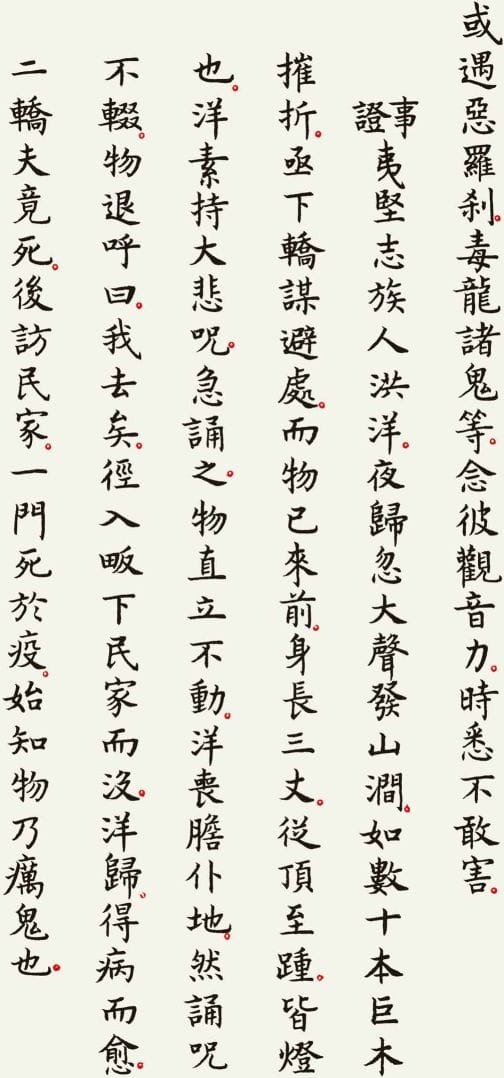 或遇惡羅刹。毒龍諸鬼等。念彼觀音力。時悉不敢害。
證事 夷堅志族人洪洋。夜歸忽大聲發山澗。如數十本巨木
摧折。亟下轎謀避處。而物已來前。身長三丈。從頂至踵。皆燈
也。洋素持大悲呪。急誦之。物直立不動。洋喪膽仆地。然誦呪
不輟。物退呼曰。我去矣。徑入畈下民家而沒。洋歸。得病而愈。
二轎夫竟死。後訪民家。一門死於疫。始知物乃癘鬼也。